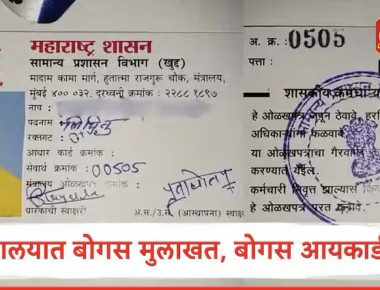 महाराष्ट्र शासन
सामान्य प्रशासन विभाग (खुद्द)
मादाम कामा मार्ग, हुतात्मा राजगुरू चौक, मंत्रालय,
मुंबई ४०० ०३२. दूरध्वनी क्रमांक : २२८८ १८९७
नाव :
पदनाम : लिपिक
रक्तगट :
आधार कार्ड क्रमांक :
सेवार्थ क्रमांक : 00505
ओळखपत्र क्रमांक :
धारकाची स्वाक्षरी
अ.स./उ.स. (आस्थापना)
अ. क्र. : 0505
पत्ता :
शासकीय कर्मचा
हे ओळखपत्र जपून ठेवावे. हर
अधिकाऱ्यांना कळवावे.
या ओळखपत्राचा गैरवापर
करण्यात येईल.
कर्मचारी निवृत्त झाल्यास
हे ओळखपत्र परत करावे.
ालयात बोगस मुलाखत, बोगस आयकार्ड